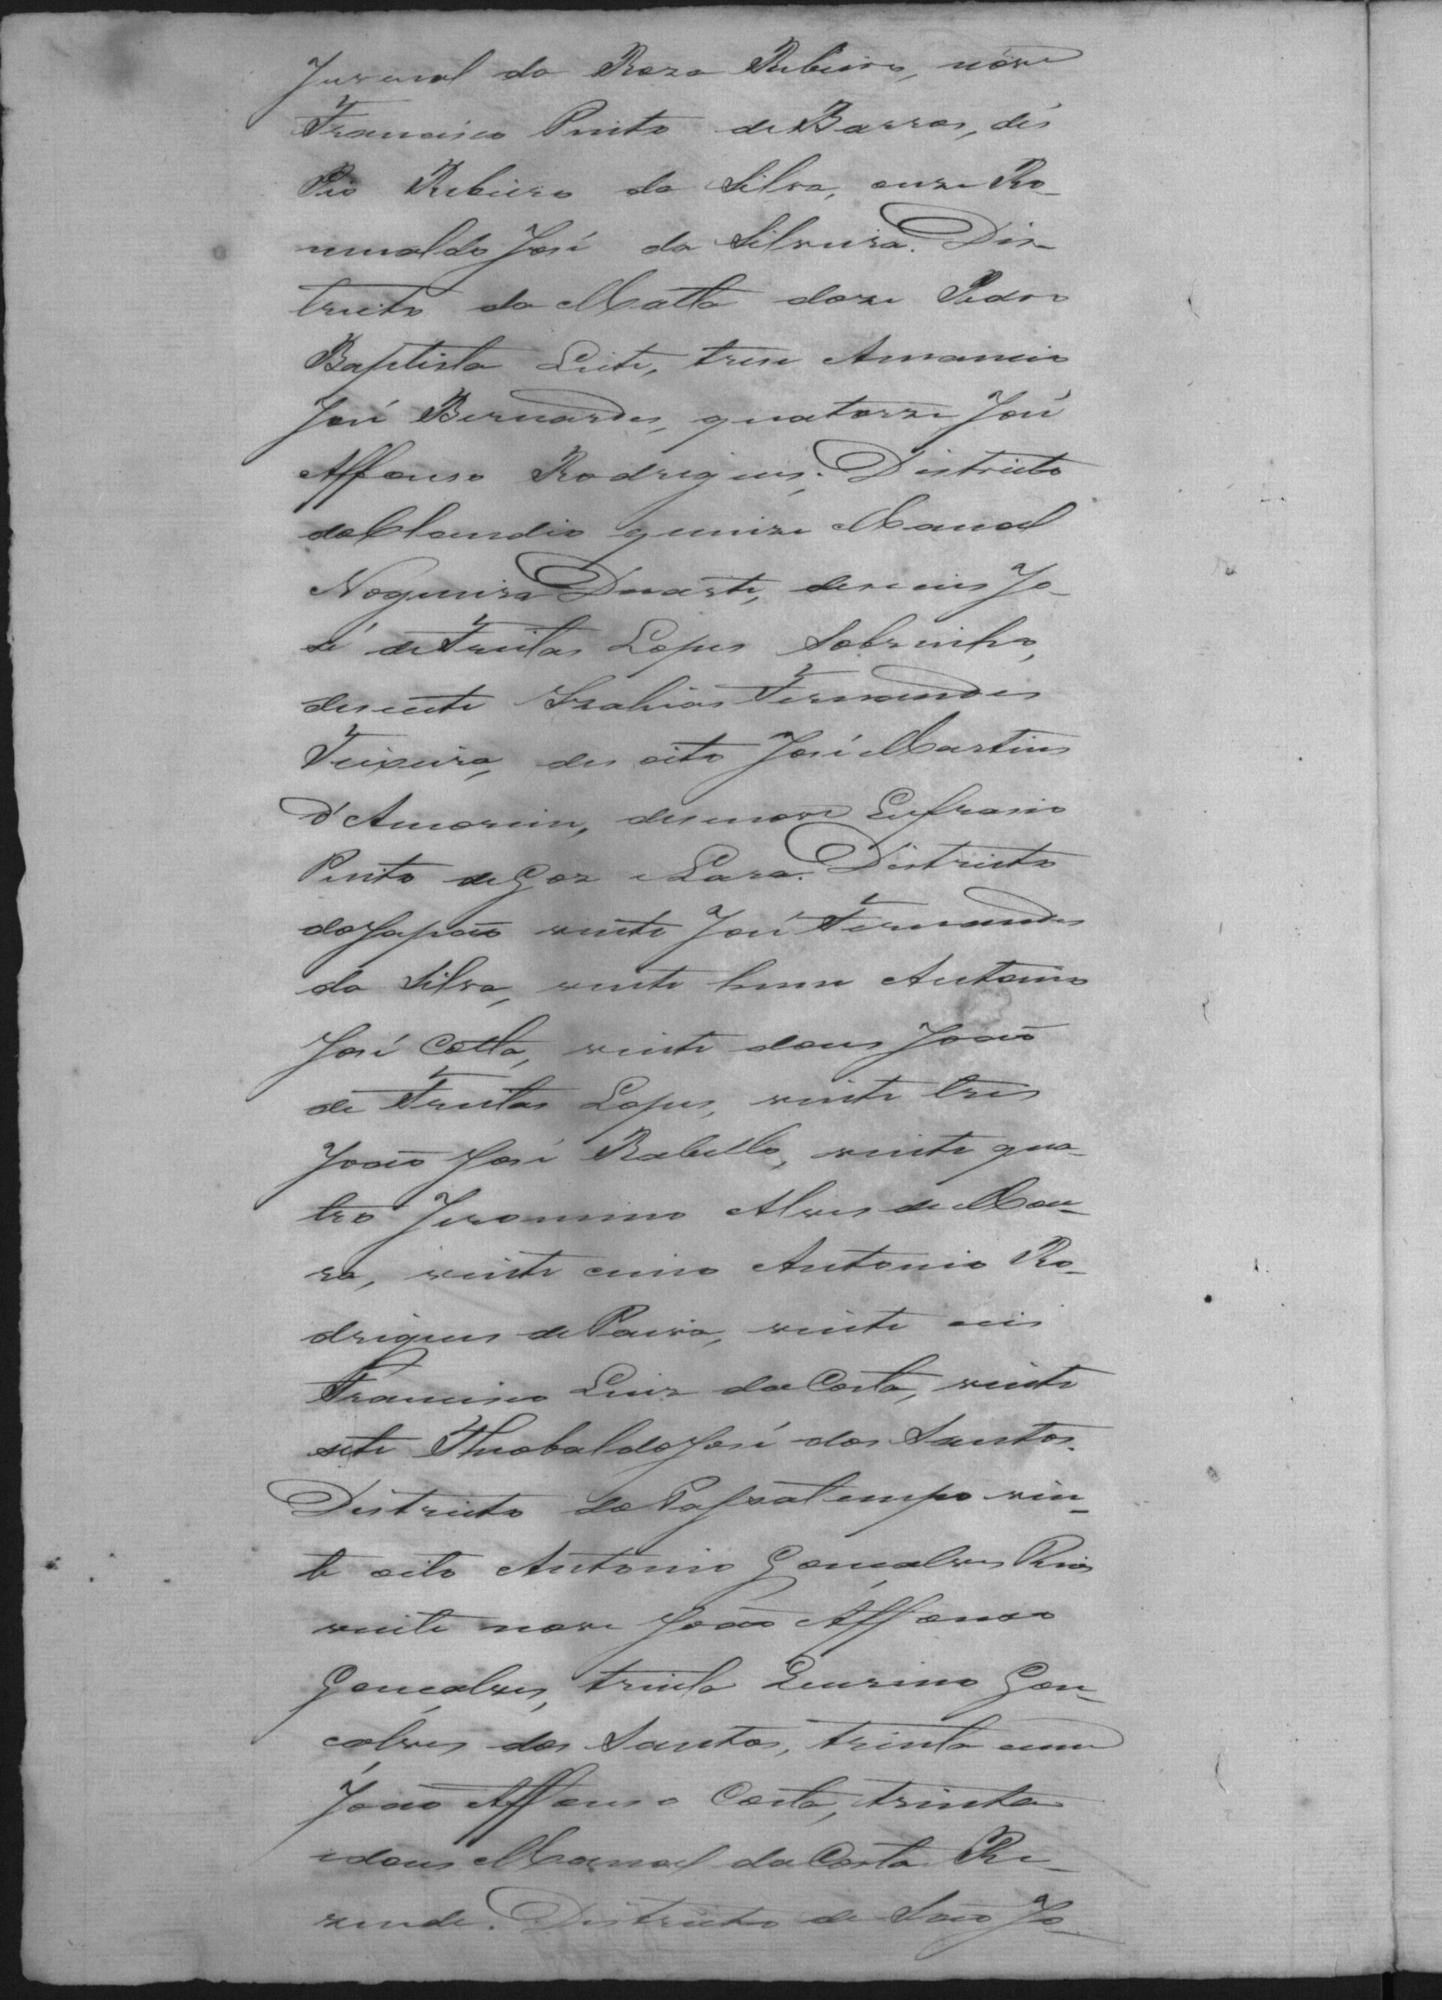 Juvenal da Roza Ribeiro, nóve
Francisco Pinto de Barros, dés
Pio Ribeiro da Silva, onze Ro-
mualdo José da Silveira. Dis-
tricto da Matta doze Pedro
Baptista Leite, trese Amancio
José Bernardes, quatorze José
Affonso Rodrigues. Districto
do Claudio quinze Manoel
Nogueira Duarte, deseseis Jo-
sé de Freitas Lopes Sobrinho,
desesete Izahias Fernandes
Teixeira, des oito José Martins
d'Amorim, desenove Eufrasio
Pinto de Goz e Lara. Districto
do Japão vinte José Fernandes
da Silva, vinte hum Antonio
José Cotta, vinte dous João
de Freitas Lopes, vinte tres
João José Rabello, vinte qua-
tro Jeronimo Alves de Mou-
ra, vinte cinco Antonio Ro-
drigues de Paiva, vinte seis
Francisco Luiz da Costa, vinte
sete Theobaldo José dos Santos.
Districto do Passatempo vin-
te oito Antonio Gonçalves Rios
vinte nove João Affonso
Gonçalves, trinta Leurino Gon-
çalves dos Santos, trinta e um
João Affonso Costa, trinta
e dous Manoel da Costa Re-
zende. Districto de São Jo-